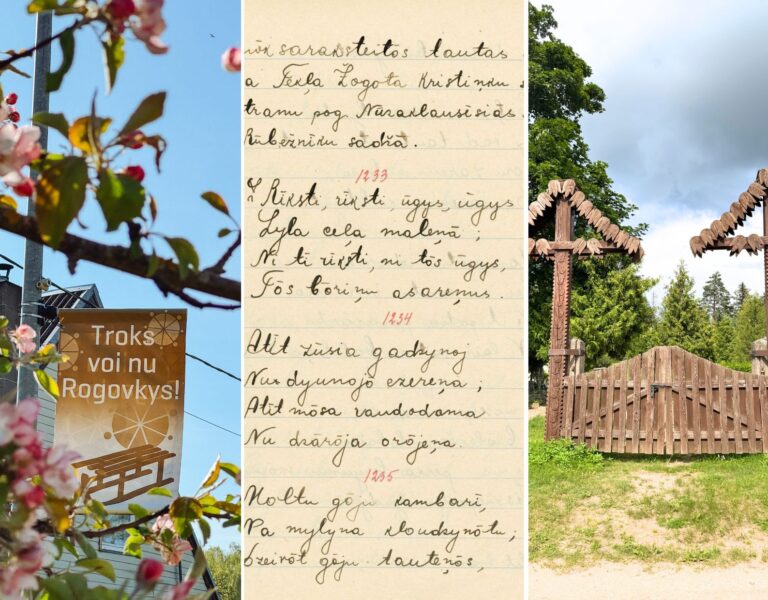 Troks
voi nu
Rogovkys!
saraksteitōs tautas
a Tekļa Logota Kristiņku
pog. Nuraklausīsiās
sādžā.
1233
Rīksti, rīksti, ūgys, ūgys
Lyla ceļa maleņā;
Ni tī rīksti, ni tōs ūgys,
Tōs bōriņu asareņus.
1234
Atit zūsia gadzynoj
Nu dyunojō ezereņa;
Atit mōsa raudodama
Nu dzārōja orōjeņa.
1235
Moltu gōju kambarī,
Pa mylyna kloudzynōtu;
gōju tauteņōs,